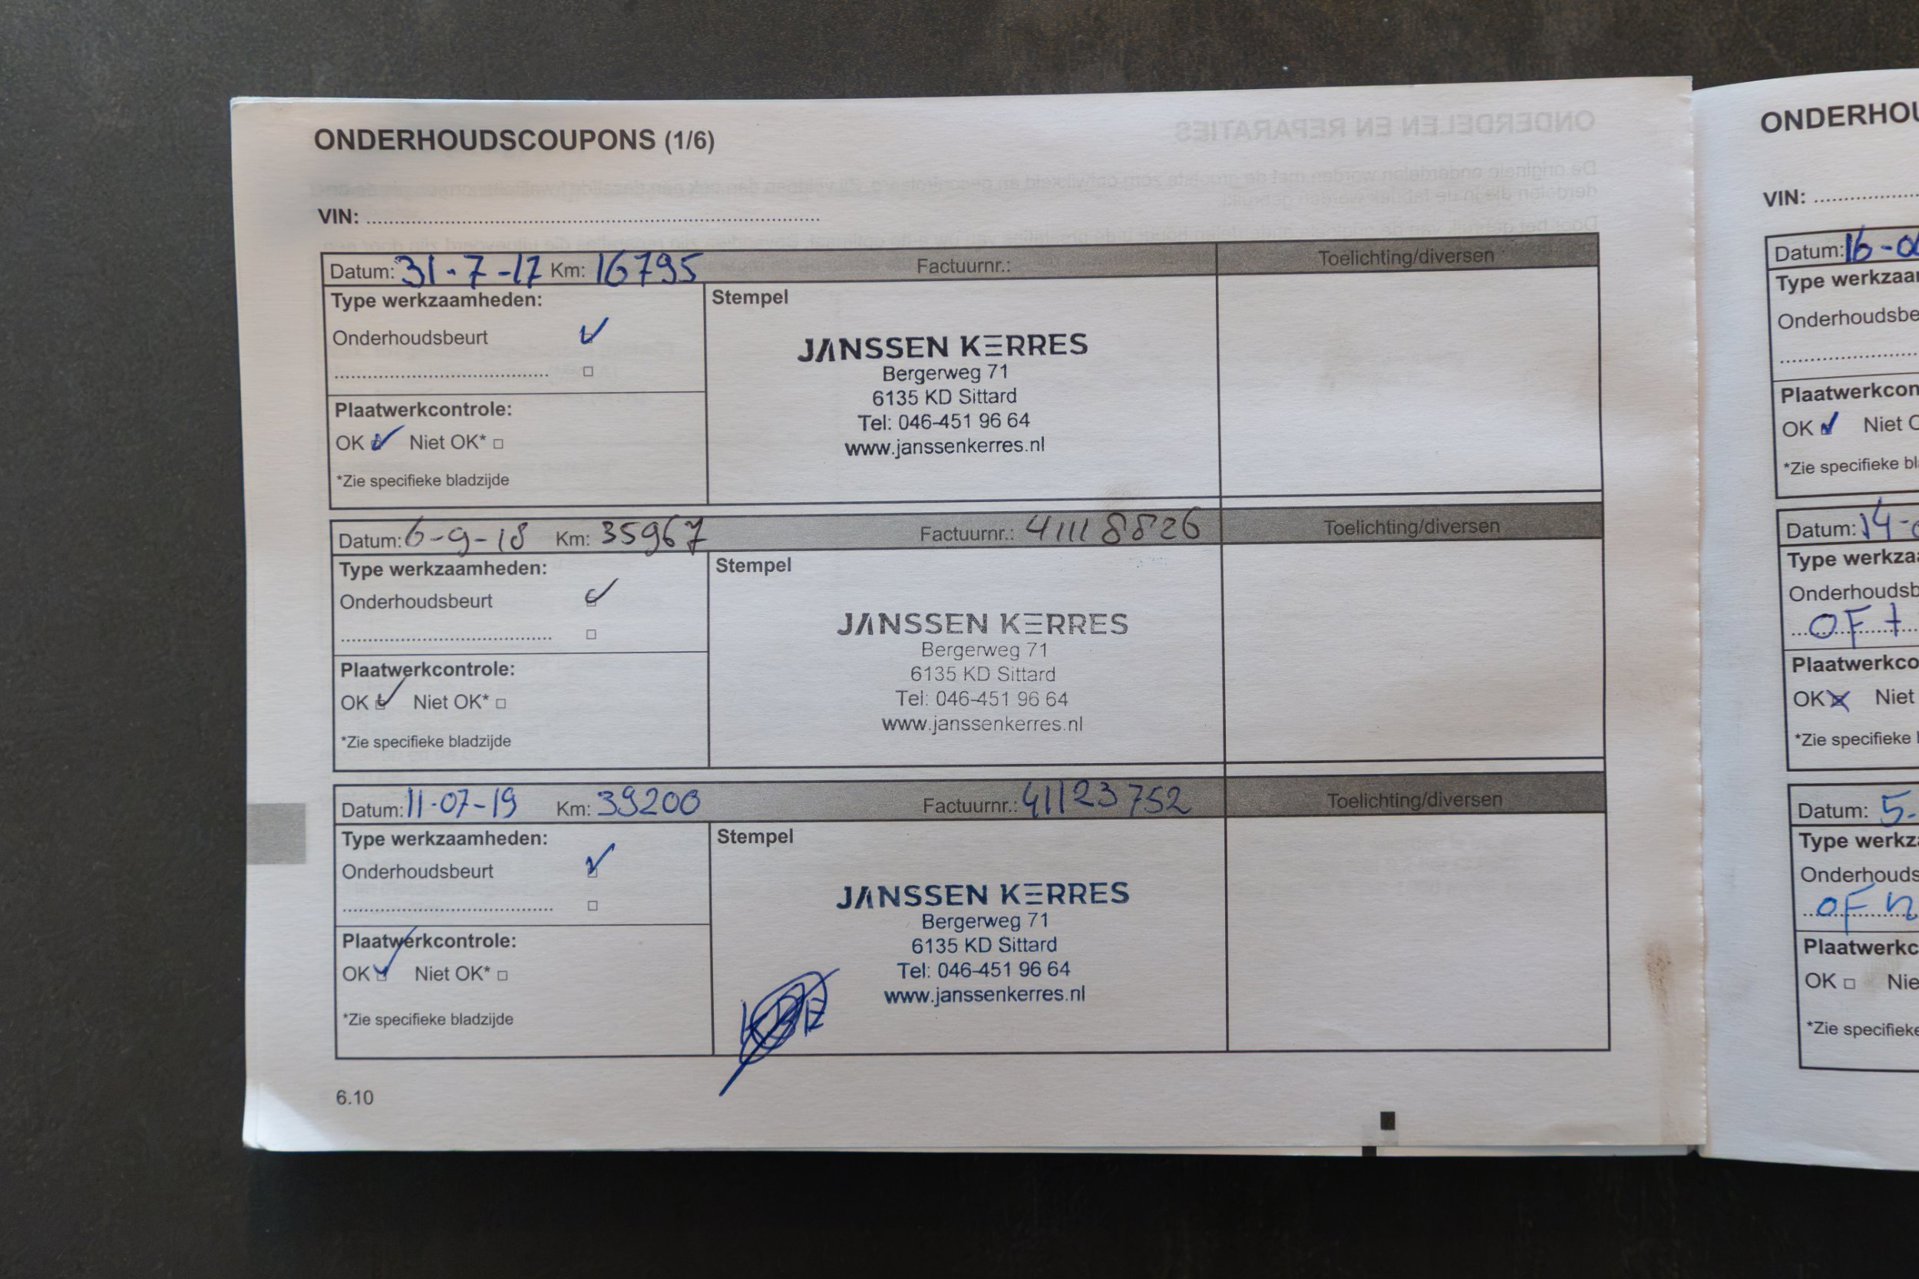 ONDERHOUDSCOUPONS (1/6)
VIN:
Datum: 31-7-17 Km: 16795 Factuurnr.: Toelichting/diversen
Type werkzaamheden:
Stempel
Onderhoudsbeurt
JANSSEN KERRES
Bergerweg 71
6135 KD Sittard
Tel: 046-451 96 64
www.janssenkerres.nl
Plaatwerkcontrole:
OK Niet OK*
*Zie specifieke bladzijde
Datum: 6-9-18 Km: 35967 Factuurnr.: 41118826 Toelichting/diversen
Type werkzaamheden:
Stempel
Onderhoudsbeurt
JANSSEN KERRES
Bergerweg 71
6135 KD Sittard
Tel: 046-451 96 64
www.janssenkerres.nl
Plaatwerkcontrole:
OK Niet OK*
*Zie specifieke bladzijde
Datum: 11-07-19 Km: 39200 Factuurnr.: 41123752 Toelichting/diversen
Type werkzaamheden:
Stempel
Onderhoudsbeurt
JANSSEN KERRES
Bergerweg 71
6135 KD Sittard
Tel: 046-451 96 64
www.janssenkerres.nl
Plaatwerkcontrole:
OK Niet OK*
*Zie specifieke bladzijde
6.10
ONDERHOU
VIN:
Datum: 16-0
Type werkzaa
Onderhoudsbe
Plaatwerkcon
OK Niet
*Zie specifieke bl
Datum: 14-
Type werkza
Onderhoudsb
OF +
Plaatwerkco
OK Niet
*Zie specifieke
Datum: 5-
Type werkz
Onderhouds
OF
Plaatwerkc
OK Nie
*Zie specifieke